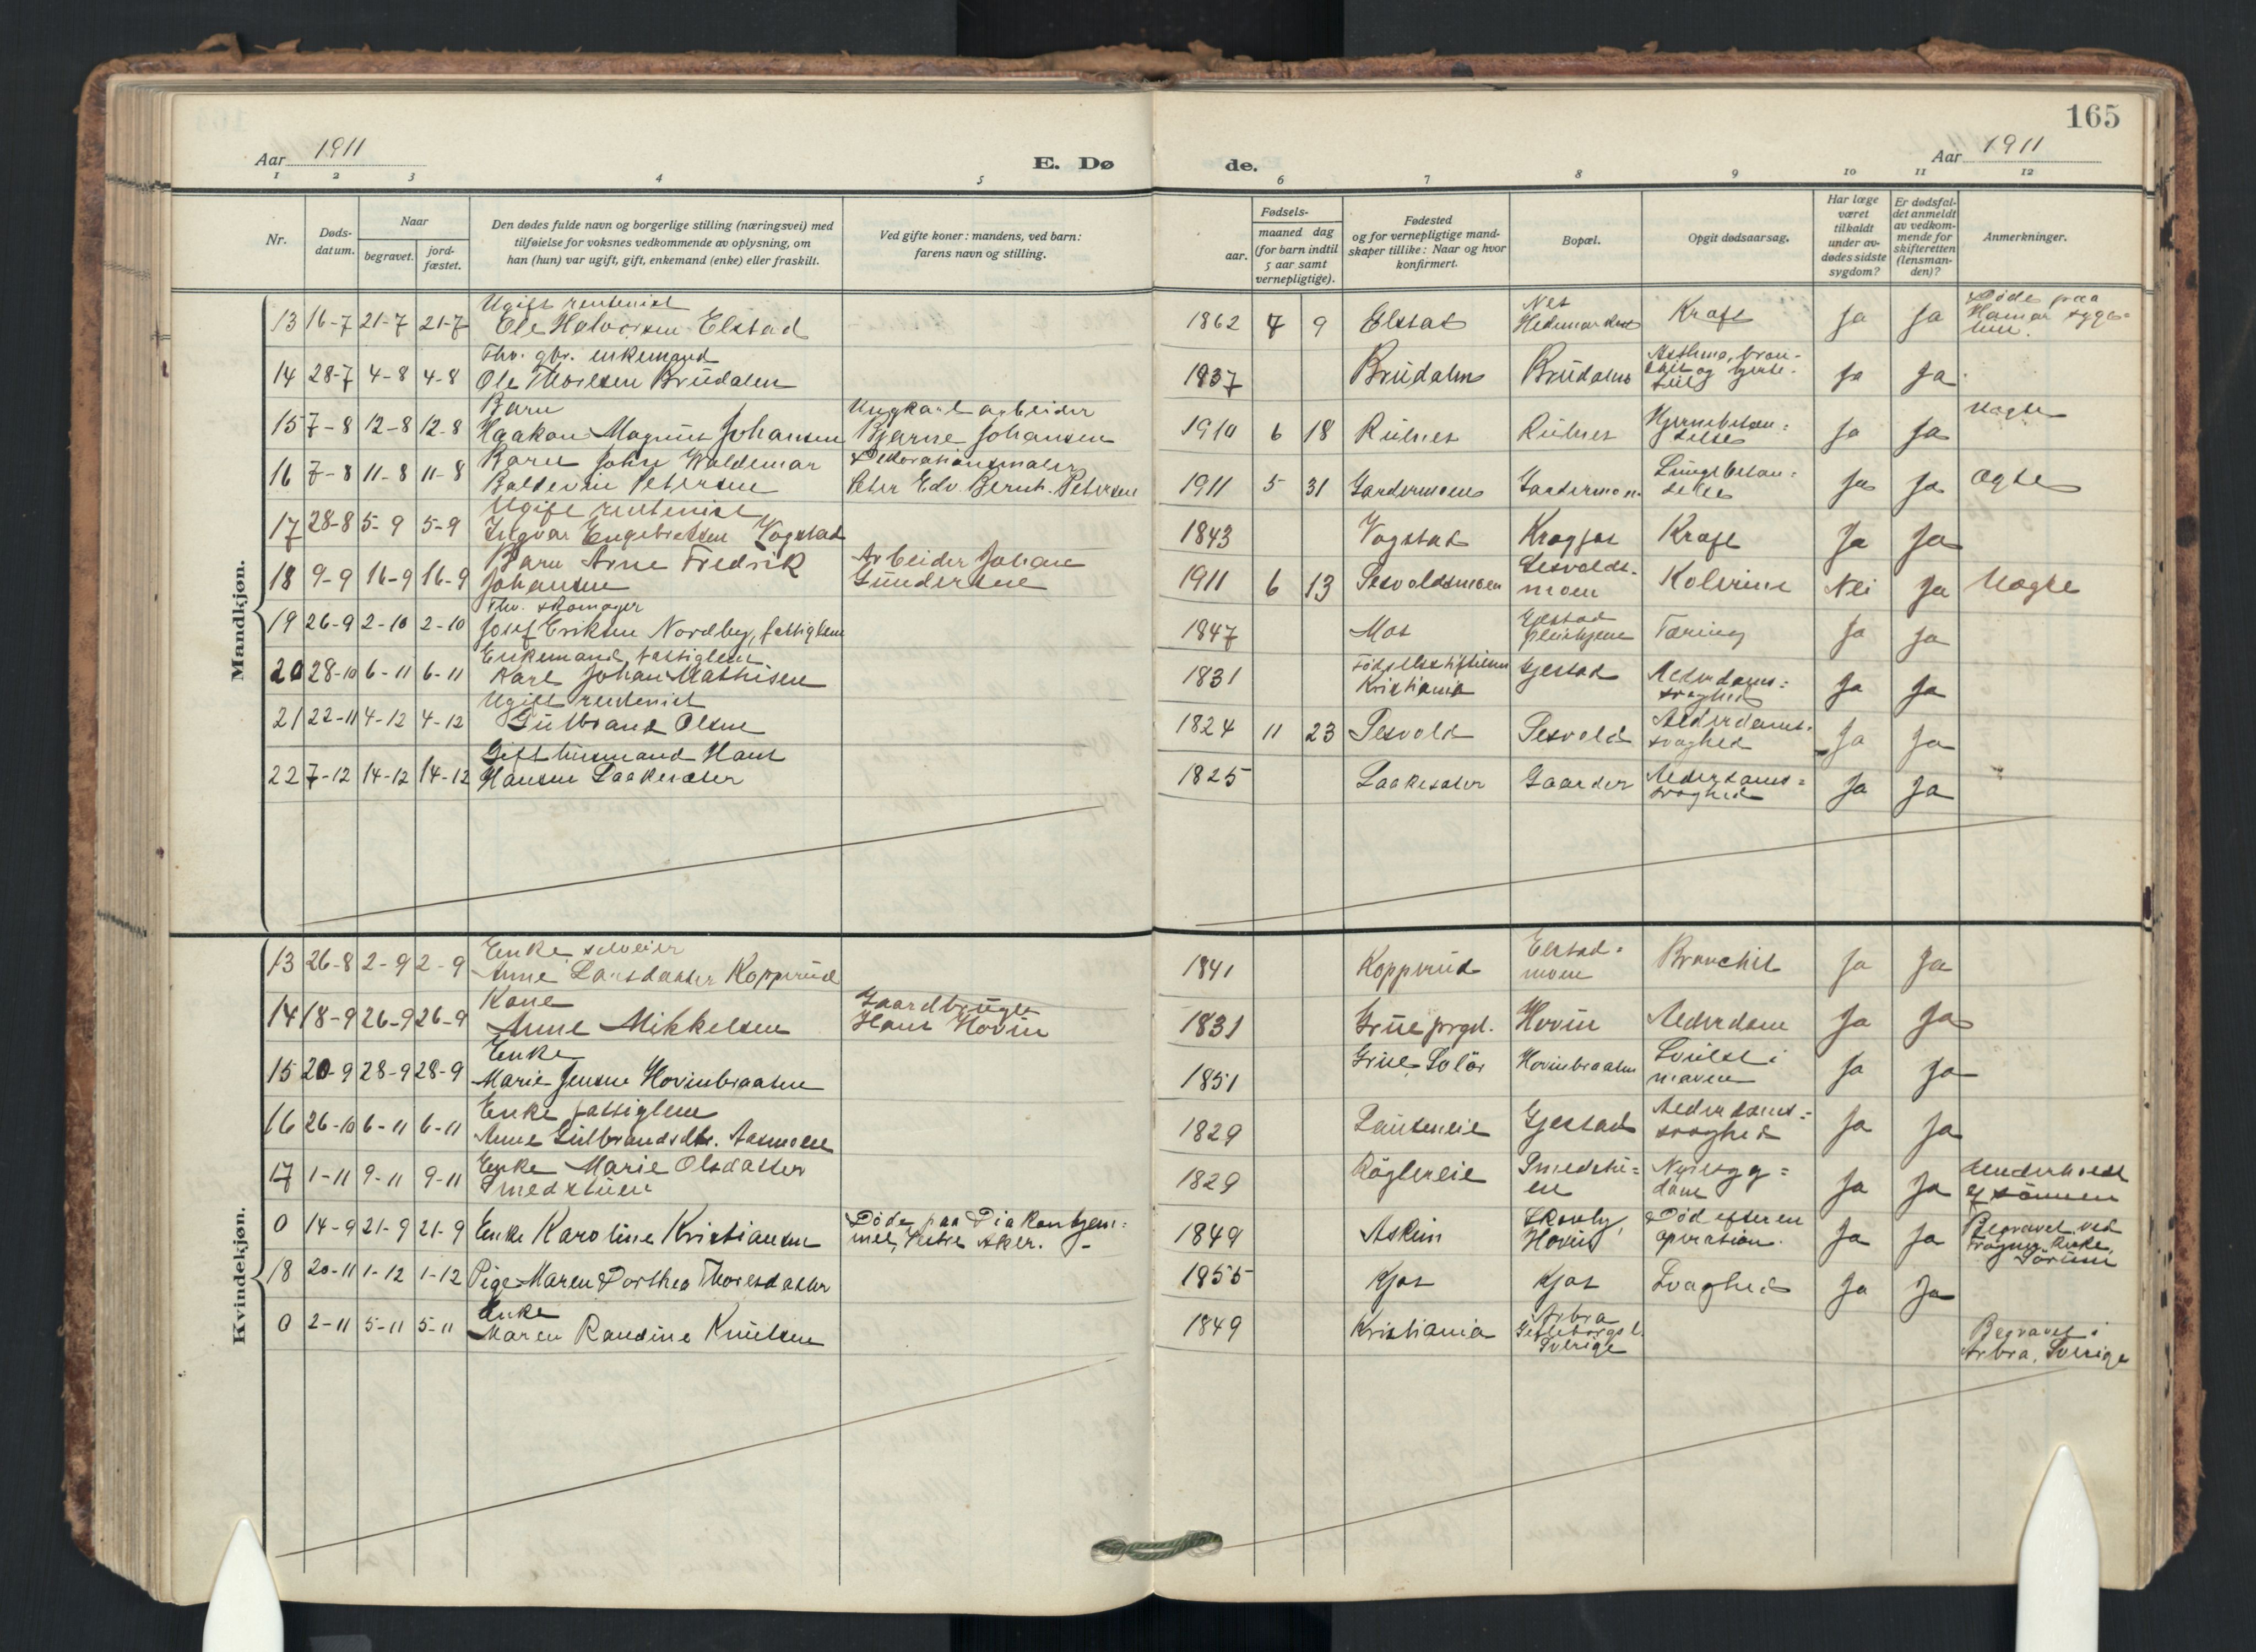 165
Aar 1911
E. Dø
de.
Aar 1911
1 2 3 4 5 6 7 8 9 10 11 12
Nr.
Døds-
datum.
Naar
begravet.
jord-
fæstet.
Den dødes fulde navn og borgerlige stilling (næringsvei) med
tilføielse for voksnes vedkommende av oplysning, om
han (hun) var ugift, gift, enkemand (enke) eller fraskilt.
Ved gifte koner: mandens, ved barn:
farens navn og stilling.
Fødsels-
aar.
maaned dag
(for barn indtil
5 aar samt
vernepligtige).
Fødested
og for vernepligtige mand-
skaper tillike: Naar og hvor
konfirmert.
Bopæl.
Opgit dødsaarsag.
Har læge
været
tilkaldt
under av-
dødes sidste
sygdom?
Er dødsfal-
det anmeldt
av vedkom-
mende for
skifteretten
(lensman-
den)?
Anmerkninger.
Mandkjøn.
Ugift rentenist
13 16-7 21-7 21-7 Ole Halvorsen Elstad 1862 7 9 Elstad
Nes
Hedemarken
Kræft Ja Ja
Døde paa
Hamar syge-
hus.
Fhv. gbr. enkemand
14 28-7 4-8 4-8 Ole Thorsen Brudalen 1837 Brudalen Brudalen
Asthma, bron-
kit og hjerte-
Ja Ja
Barn
15 7-8 12-8 12-8 Haakon Magnus Johansen
Ungkarl arbeider
Bjarne Johansen
1910 6 18 Rulnes Rulnes
Hjernebetæn-
delse
Ja Ja Uægte
16 7-8 11-8 11-8 Barn John Waldemar
Baldevin Petersen
Dekorationsmaler
Peter Edv. Bernt. Petersen
1911 5 31 Gardermoen Gardermoen
Lungebetæn-
delse
Ja Ja Ægte
Ugift rentenist
17 28-8 5-9 5-9 Ingvar Engebretsen Vogstad 1843 Vogstad Kragfos Kræft Ja Ja
18 9-9 16-9 16-9 Barn Arne Fredrik
Johansen
Arbeider Johan
Gundersen
1911 6 13 Jesvoldsmoen
Jesvolds-
moen
Kolerine Nei Ja Uægte
Fhv. skomager
19 26-9 2-10 2-10 Josef Eriksen Nordby, fattiglem 1847 Mos
pleiehjem
Tæring Ja Ja
Enkemand, fattiglem
20 28-10 6-11 6-11 Karl Johan Mathisen 1831
Fødselsstiftelsen
Kristiania
Gjestad
Alderdoms-
svaghed
Ja Ja
Ugift rentenist
21 22-11 4-12 4-12 Gulbrand Olsen 1824 11 23 Jesvold Jesvold
Alderdoms-
svaghed
Ja Ja
Gift husmand Hans
22 7-12 14-12 14-12 Hansen Laakesæter 1825 Laakesæter Gaarder
Alderdoms-
svaghed
Ja Ja
Kvindekjøn.
Enke selveier
13 26-8 2-9 2-9 Anne Larsdatter Kopperud 1841 Kopperud
Elstad-
moen
Bronchit Ja Ja
Kone
14 18-9 26-9 26-9 Anne Mikkelsen
Gaardbruger
Hans Hovin
1831 Grue prgd. Hovin Alderdom Ja Ja
Enke
15 20-9 28-9 28-9 Marie Jensen Hovinbraaten 1851 Grue Solør Hovinbraaten
Svulst i
maven
Ja Ja
Enke fattiglem
16 26-10 6-11 6-11 Anne Gulbrandsdtr. Aasmoen 1829 Gjestad
Alderdoms-
svaghed
Ja Ja
17 1-11 9-11 9-11 Enke Marie Olsdatter
Smedstuen
1829 Røglereie
Smedstu-
en
Nyresyg-
dom
Ja Ja
Underholdt
af sønnen
0 14-9 21-9 21-9 Enke Karoline Kristiansen
Døde paa Diakonhjem-
met, Vestre Aker.
1849 Askim
Skovly,
Hovin
Død efter en
operation.
Ja Ja
Begravet ved
Frogner kirke,
Sørum
18 20-11 1-12 1-12 Pige Maren Dorthea Thoresdatter 1855 Kjos Kjos Svaghed Ja Ja
Enke
0 2-11 5-11 5-11 Maren Randine Knutsen 1849 Kristiania
Arbra
Gefleborgs l.
Sverige
Begravet i
Arbra, Sverige